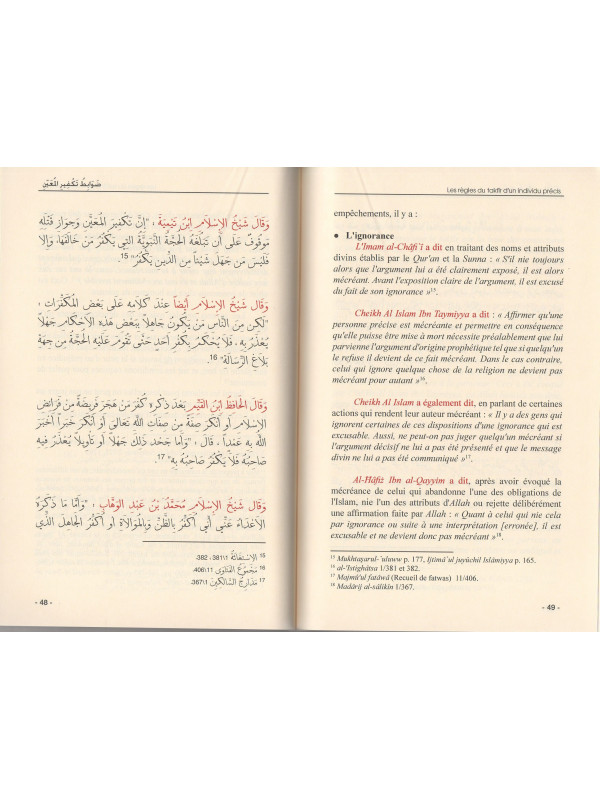 ضَوَابِطُ تَكْفِيرِ المُعَيَّنِ
وَقَالَ شَيْخُ الإِسْلَامِ ابْنُ تَيْمِيَةَ : "إِنَّ تَكْفِيرَ المُعَيَّنِ وَجَوَازَ قَتْلِهِ
مَوْقُوفٌ عَلَى أَنْ تَبْلُغَهُ الحُجَّةُ النَّبَوِيَّةُ الَّتِي يَكْفُرُ مَنْ خَالَفَهَا، وَإِلَّا
فَلَيْسَ مَنْ جَهِلَ شَيْئاً مِنَ الدِّينِ يَكْفُرُ" 15.
وَقَالَ شَيْخُ الإِسْلَامِ أَيْضاً عِنْدَ كَلَامِهِ عَلَى بَعْضِ المُكَفِّرَاتِ ،
"لَكِنْ مِنَ النَّاسِ مَنْ يَكُونُ جَاهِلاً بِبَعْضِ هَذِهِ الأَحْكَامِ جَهْلاً
يُعْذَرُ بِهِ ، فَلَا يُحْكَمُ بِكُفْرِ أَحَدٍ حَتَّى تَقُومَ عَلَيْهِ الحُجَّةُ مِنْ جِهَةِ
بَلَاغِ الرِّسَالَةِ" 16.
وَقَالَ الحَافِظُ ابْنُ القَيِّمِ بَعْدَ ذِكْرِهِ كُفْرَ مَنْ هَجَرَ فَرِيضَةً مِنْ فَرَائِضِ
الإِسْلَامِ أَوْ أَنْكَرَ صِفَةً مِنْ صِفَاتِ اللهِ تَعَالَى أَوْ أَنْكَرَ خَبَراً أَخْبَرَ
اللهُ بِهِ عَمْداً ، قَالَ : "وَأَمَّا جَحْدُ ذَلِكَ جَهْلاً أَوْ تَأْوِيلاً يُعْذَرُ فِيهِ
صَاحِبُهُ فَلَا يَكْفُرُ صَاحِبُهُ بِهِ" 17.
وَقَالَ شَيْخُ الإِسْلَامِ مُحَمَّدُ بْنُ عَبْدِ الوَهَّابِ : "وَأَمَّا مَا ذَكَرَهُ
الأَعْدَاءُ عَنِّي أَنِّي أُكَفِّرُ بِالظَّنِّ وَبِالمُوَالَاةِ أَوْ أُكَفِّرُ الجَاهِلَ الَّذِي
15 الاِسْتِغَاثَةُ 1\381، 382.
16 مَجْمُوعُ الفَتَاوَى 11\406.
17 مَدَارِجُ السَّالِكِينَ 1\367.
- 48 -
Les règles du takfir d'un individu précis
empêchements, il y a :
● L'ignorance
L'Imam al-Châfi`i a dit en traitant des noms et attributs
divins établis par le Qur'an et la Sunna : « S'il nie toujours
alors que l'argument lui a été clairement exposé, il est alors
mécréant. Avant l'exposition claire de l'argument, il est excusé
du fait de son ignorance »15.
Cheikh Al Islam Ibn Taymiyya a dit : « Affirmer qu'une
personne précise est mécréante et permettre en conséquence
qu'elle puisse être mise à mort nécessite préalablement que lui
parvienne l'argument d'origine prophétique tel que si quelqu'un
le refuse il devient de ce fait mécréant. Dans le cas contraire,
celui qui ignore quelque chose de la religion ne devient pas
mécréant pour autant »16.
Cheikh Al Islam a également dit, en parlant de certaines
actions qui rendent leur auteur mécréant : « Il y a des gens qui
ignorent certaines de ces dispositions d'une ignorance qui est
excusable. Aussi, ne peut-on pas juger quelqu'un mécréant si
l'argument décisif ne lui a pas été présenté et que le message
divin ne lui a pas été communiqué »17.
Al-Hâfiz Ibn al-Qayyim a dit, après avoir évoqué la
mécréance de celui qui abandonne l'une des obligations de
l'Islam, nie l'un des attributs d'Allah ou rejette délibérément
une affirmation faite par Allah : « Quant à celui qui nie cela
par ignorance ou suite à une interprétation [erronée], il est
excusable et ne devient donc pas mécréant »18.
15 Mukhtaṣarul-`uluww p. 177, Ijtimâ`ul juyûchil Islâmiyya p. 165.
16 al-'Istighâtsa 1/381 et 382.
17 Majmû'ul fatâwâ (Recueil de fatwas) 11/406.
18 Madârij al-sâlikîn 1/367.
- 49 -